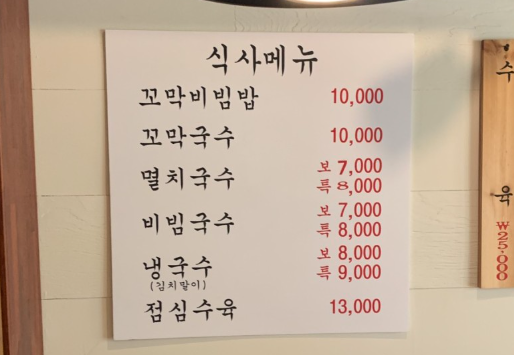 식사메뉴
꼬막비빔밥 10,000
꼬막국수 10,000
멸치국수 보 7,000
특 8,000
비빔국수 보 7,000
특 8,000
냉국수 보 8,000
(김치말이) 특 9,000
점심수육 13,000
수육
₩25,000